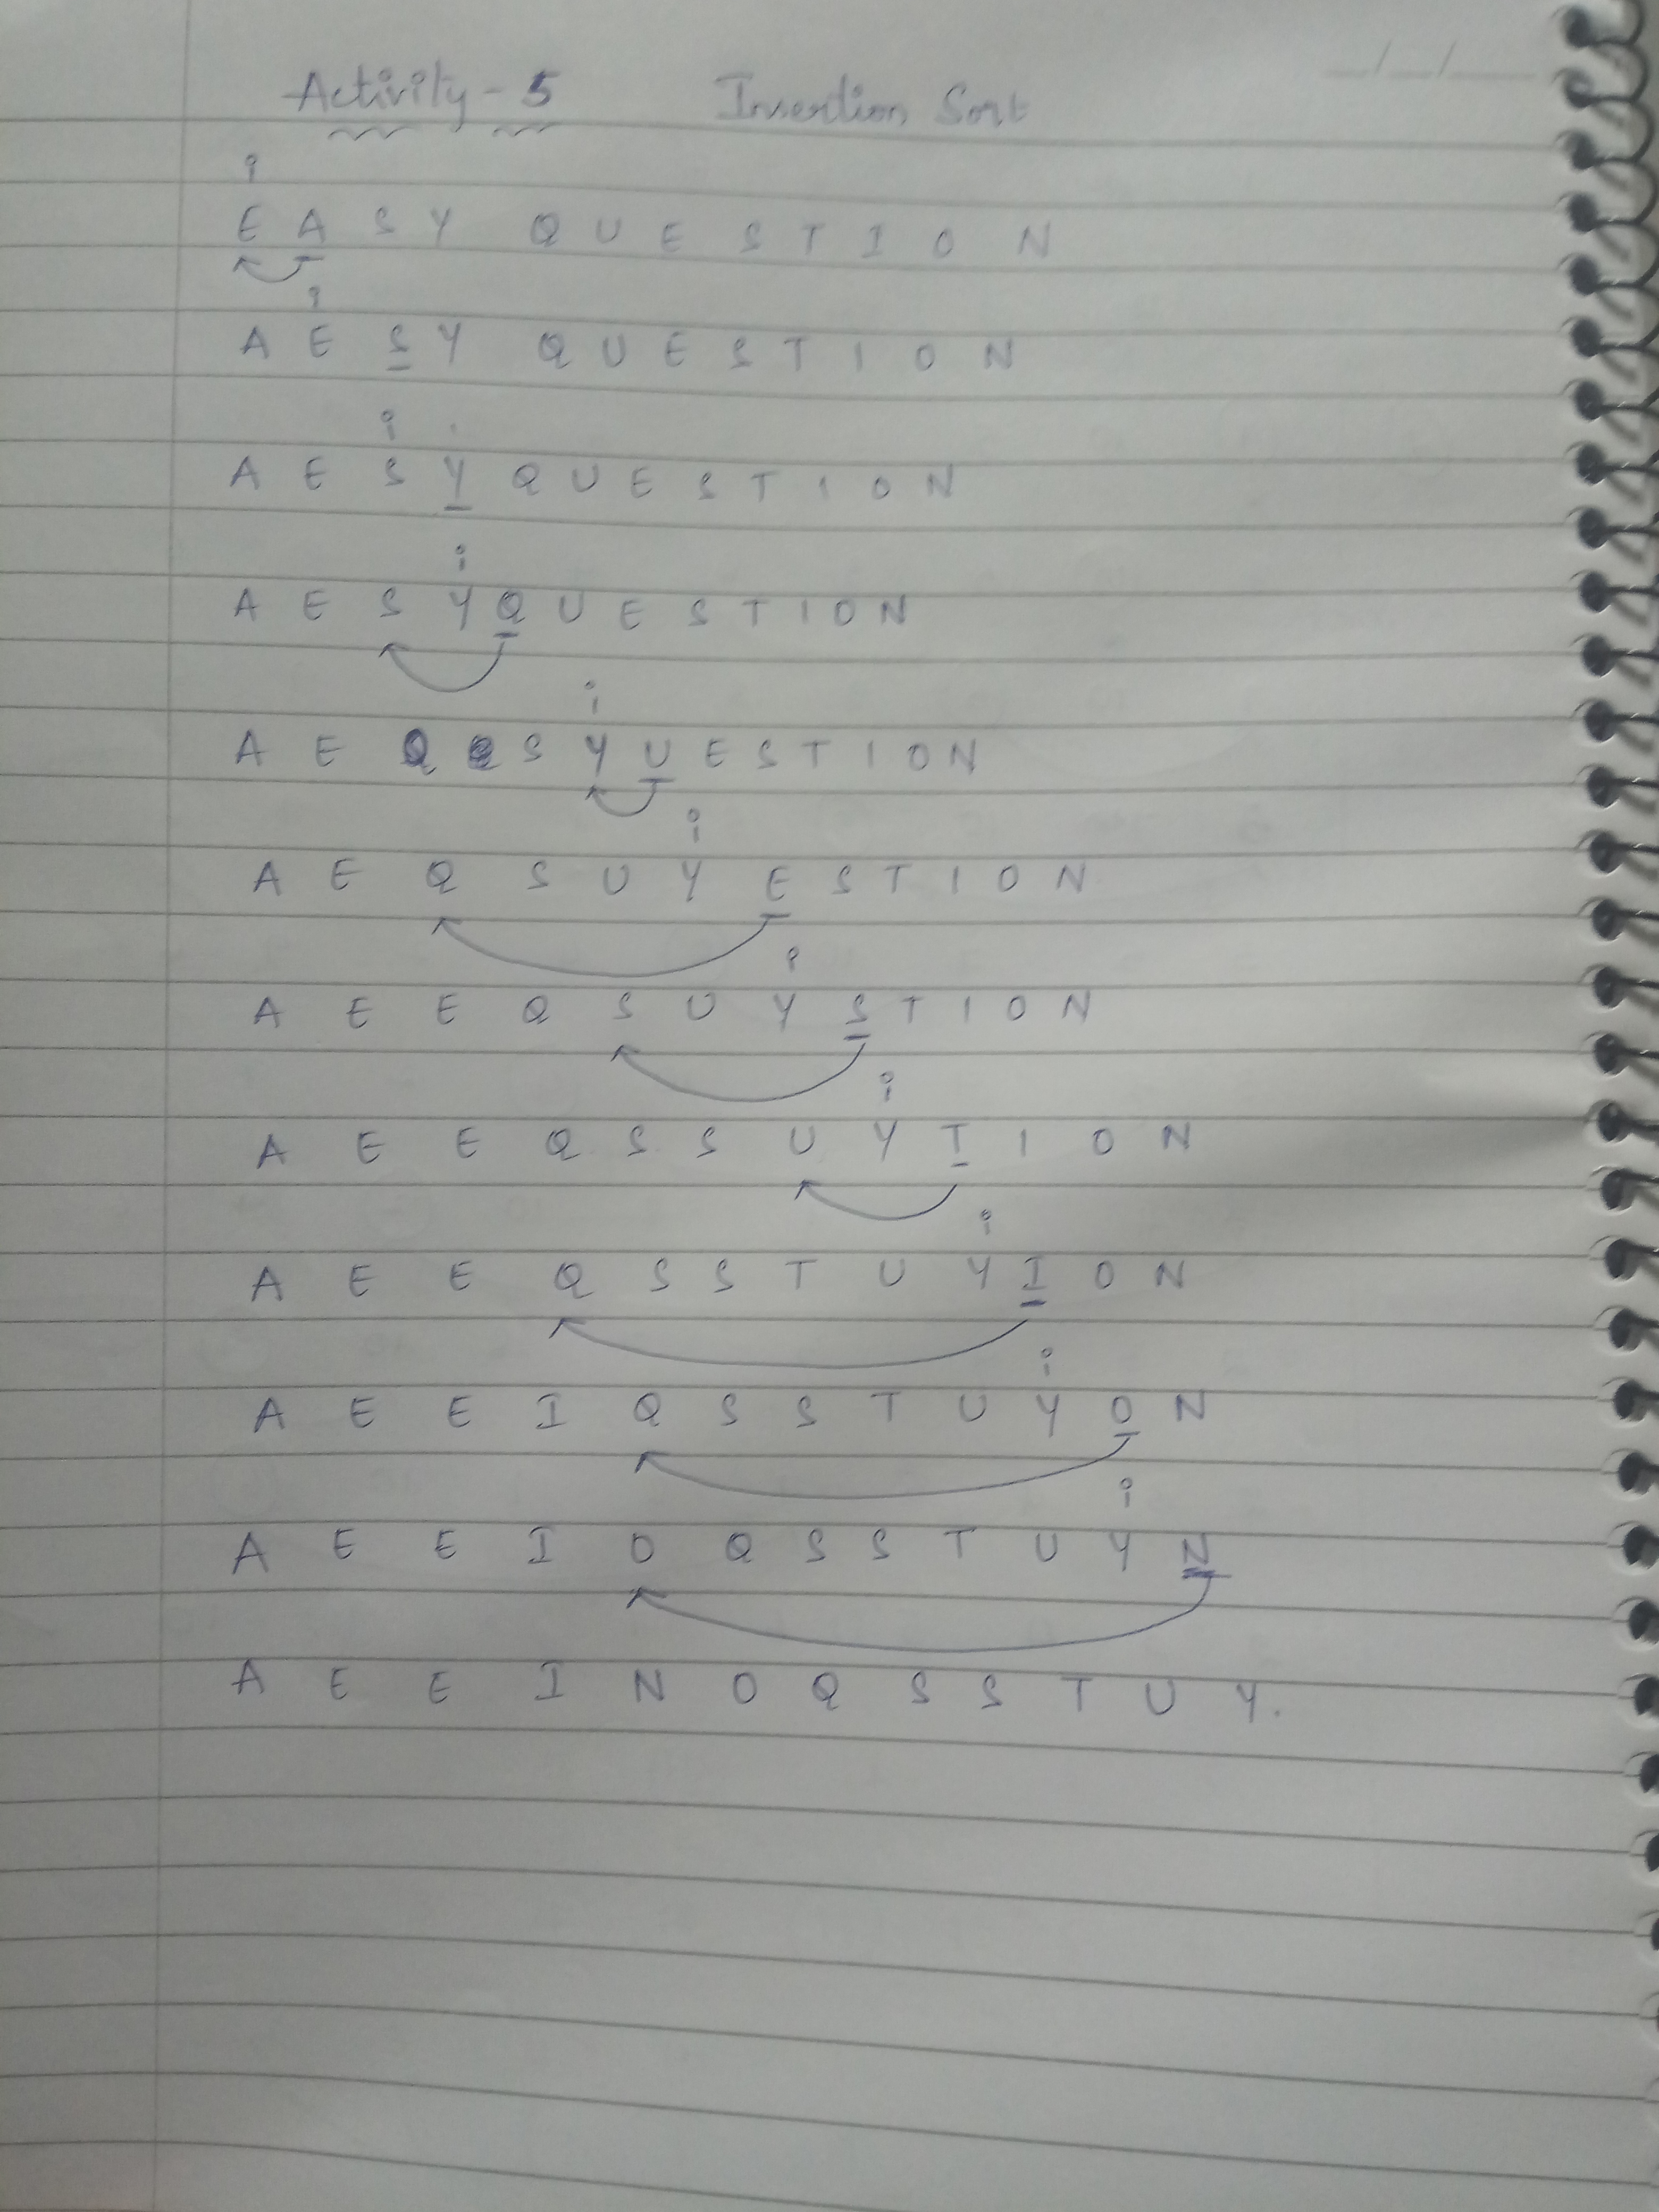 Activity - 5 Insertion Sort
i
E A S Y Q U E S T I O N
i
A E S Y Q U E S T I O N
i
A E S Y Q U E S T I O N
i
A E S Y Q U E S T I O N
i
A E Q S Y U E S T I O N
i
A E Q S U Y E S T I O N
i
A E E Q S U Y S T I O N
i
A E E Q S S U Y T I O N
i
A E E Q S S T U Y I O N
i
A E E I Q S S T U Y O N
i
A E E I O Q S S T U Y N
A E E I N O Q S S T U Y.